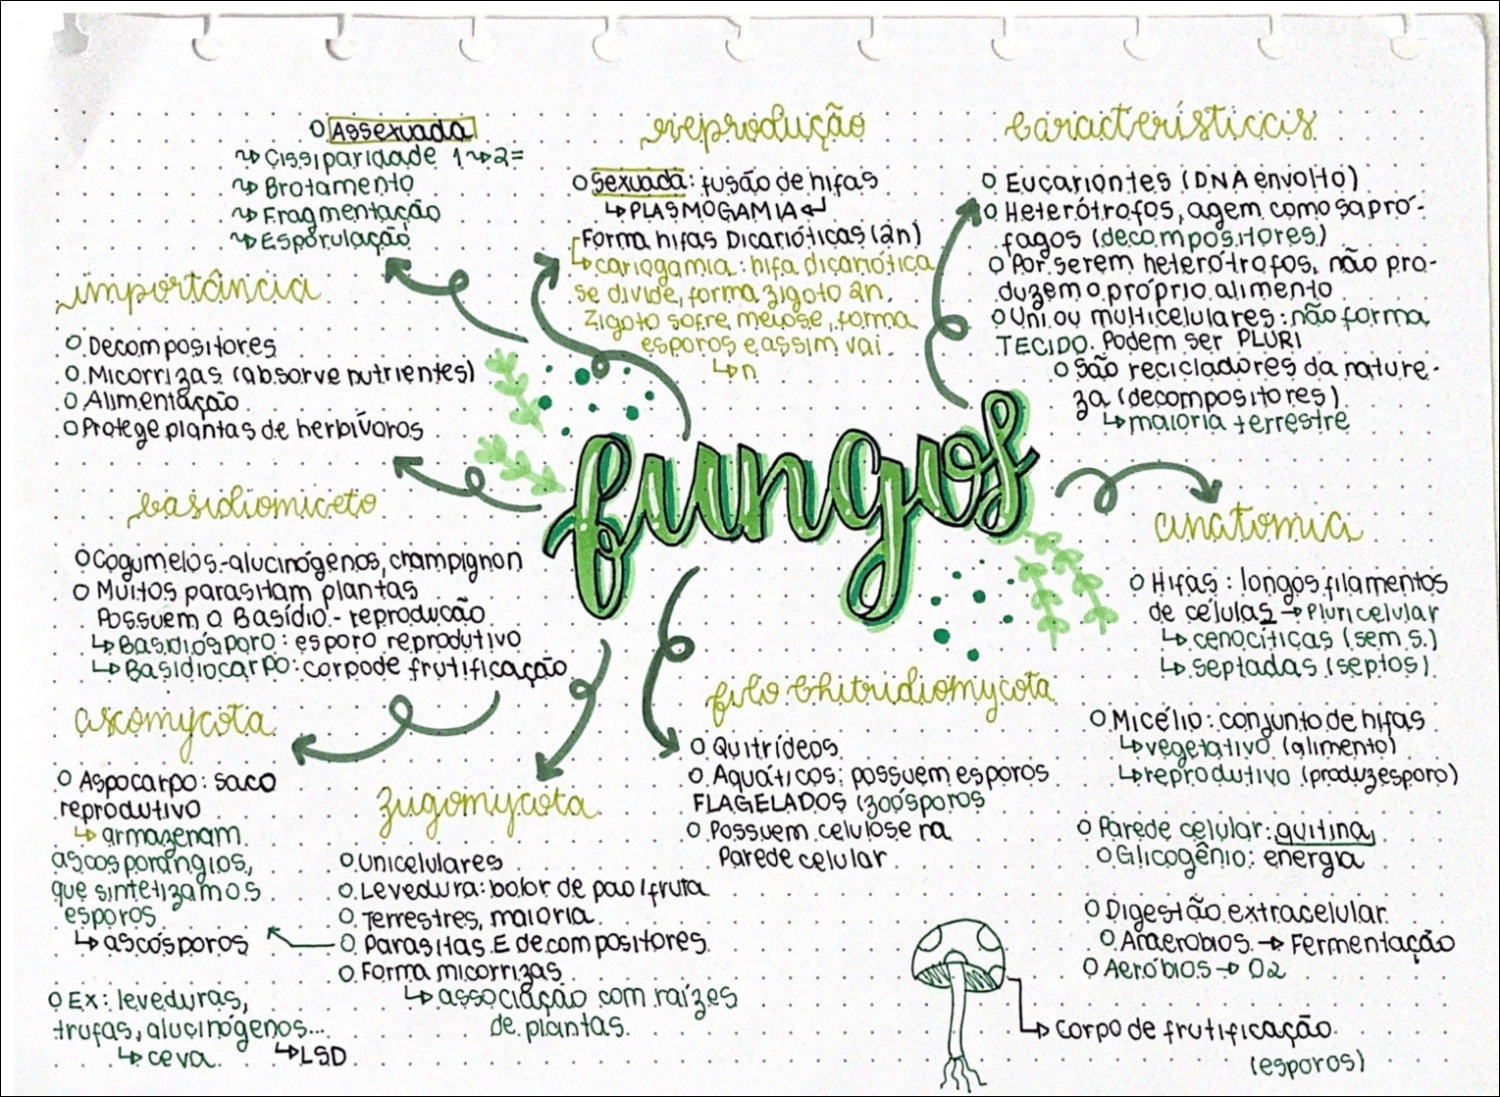 Assexuada
Cissiparidade 1 2=
Brotamento
Fragmentação
Esporulação
reprodução
Sexuada: fusão de hifas
PLASMOGAMIA
Forma hifas Dicarióticas (2n)
cariogamia: hifa dicariótica
se divide, forma zigoto 2n.
Zigoto sofre meiose, forma
esporos e assim vai
n
características
Eucariontes (DNA envolto)
Heterótrofos, agem como sapró-
fagos (decompositores)
Por serem heterótrofos, não pro-
duzem o próprio alimento
Uni ou multicelulares: não forma
TECIDO. Podem ser PLURI
São recicladores da nature-
za (decompositores)
maioria terrestre
importância
Decompositores
Micorrizas (absorve nutrientes)
Alimentação
Protege plantas de herbívoros
fungos
basidiomiceto
Cogumelos-alucinógenos, champignon
Muitos parasitam plantas
Possuem o Basídio - reprodução
Basidiósporo: esporo reprodutivo
Basidiocarpo: corpo de frutificação
anatomia
Hifas: longos filamentos
de células → Pluricelular
cenocíticas (sem s.)
septadas (septos)
Micélio: conjunto de hifas
vegetativo (alimento)
reprodutivo (produz esporo)
Parede celular: quitina
Glicogênio: energia
Digestão extracelular
Anaeróbios → Fermentação
Aeróbios → O2
ascomycota
Aspocarpo: saco
reprodutivo
armazenam
ascosporângios,
que sintetizamos
esporos
ascósporos
Ex: leveduras,
trufas, alucinógenos...
ceva
LSD
zugomycota
Unicelulares
Levedura: bolor de pao/fruta
Terrestres, maioria
Parasitas E decompositores
Forma micorrizas
associação com raízes
de plantas.
filo Chitridiomycota
Quitrídeos
Aquáticos: possuem esporos
FLAGELADOS (zoósporos
Possuem celulose na
Parede celular
corpo de frutificação
(esporos)